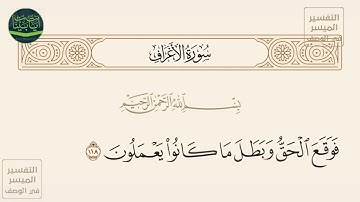 التفسير
الميسر
في الوصف
سُورَةُ الأَعْرَافِ
بِسْمِ اللَّهِ الرَّحْمَٰنِ الرَّحِيمِ
فَوَقَعَ ٱلْحَقُّ وَبَطَلَ مَا كَانُواْ يَعْمَلُونَ ١١٨
التفسير
الميسر
في الوصف